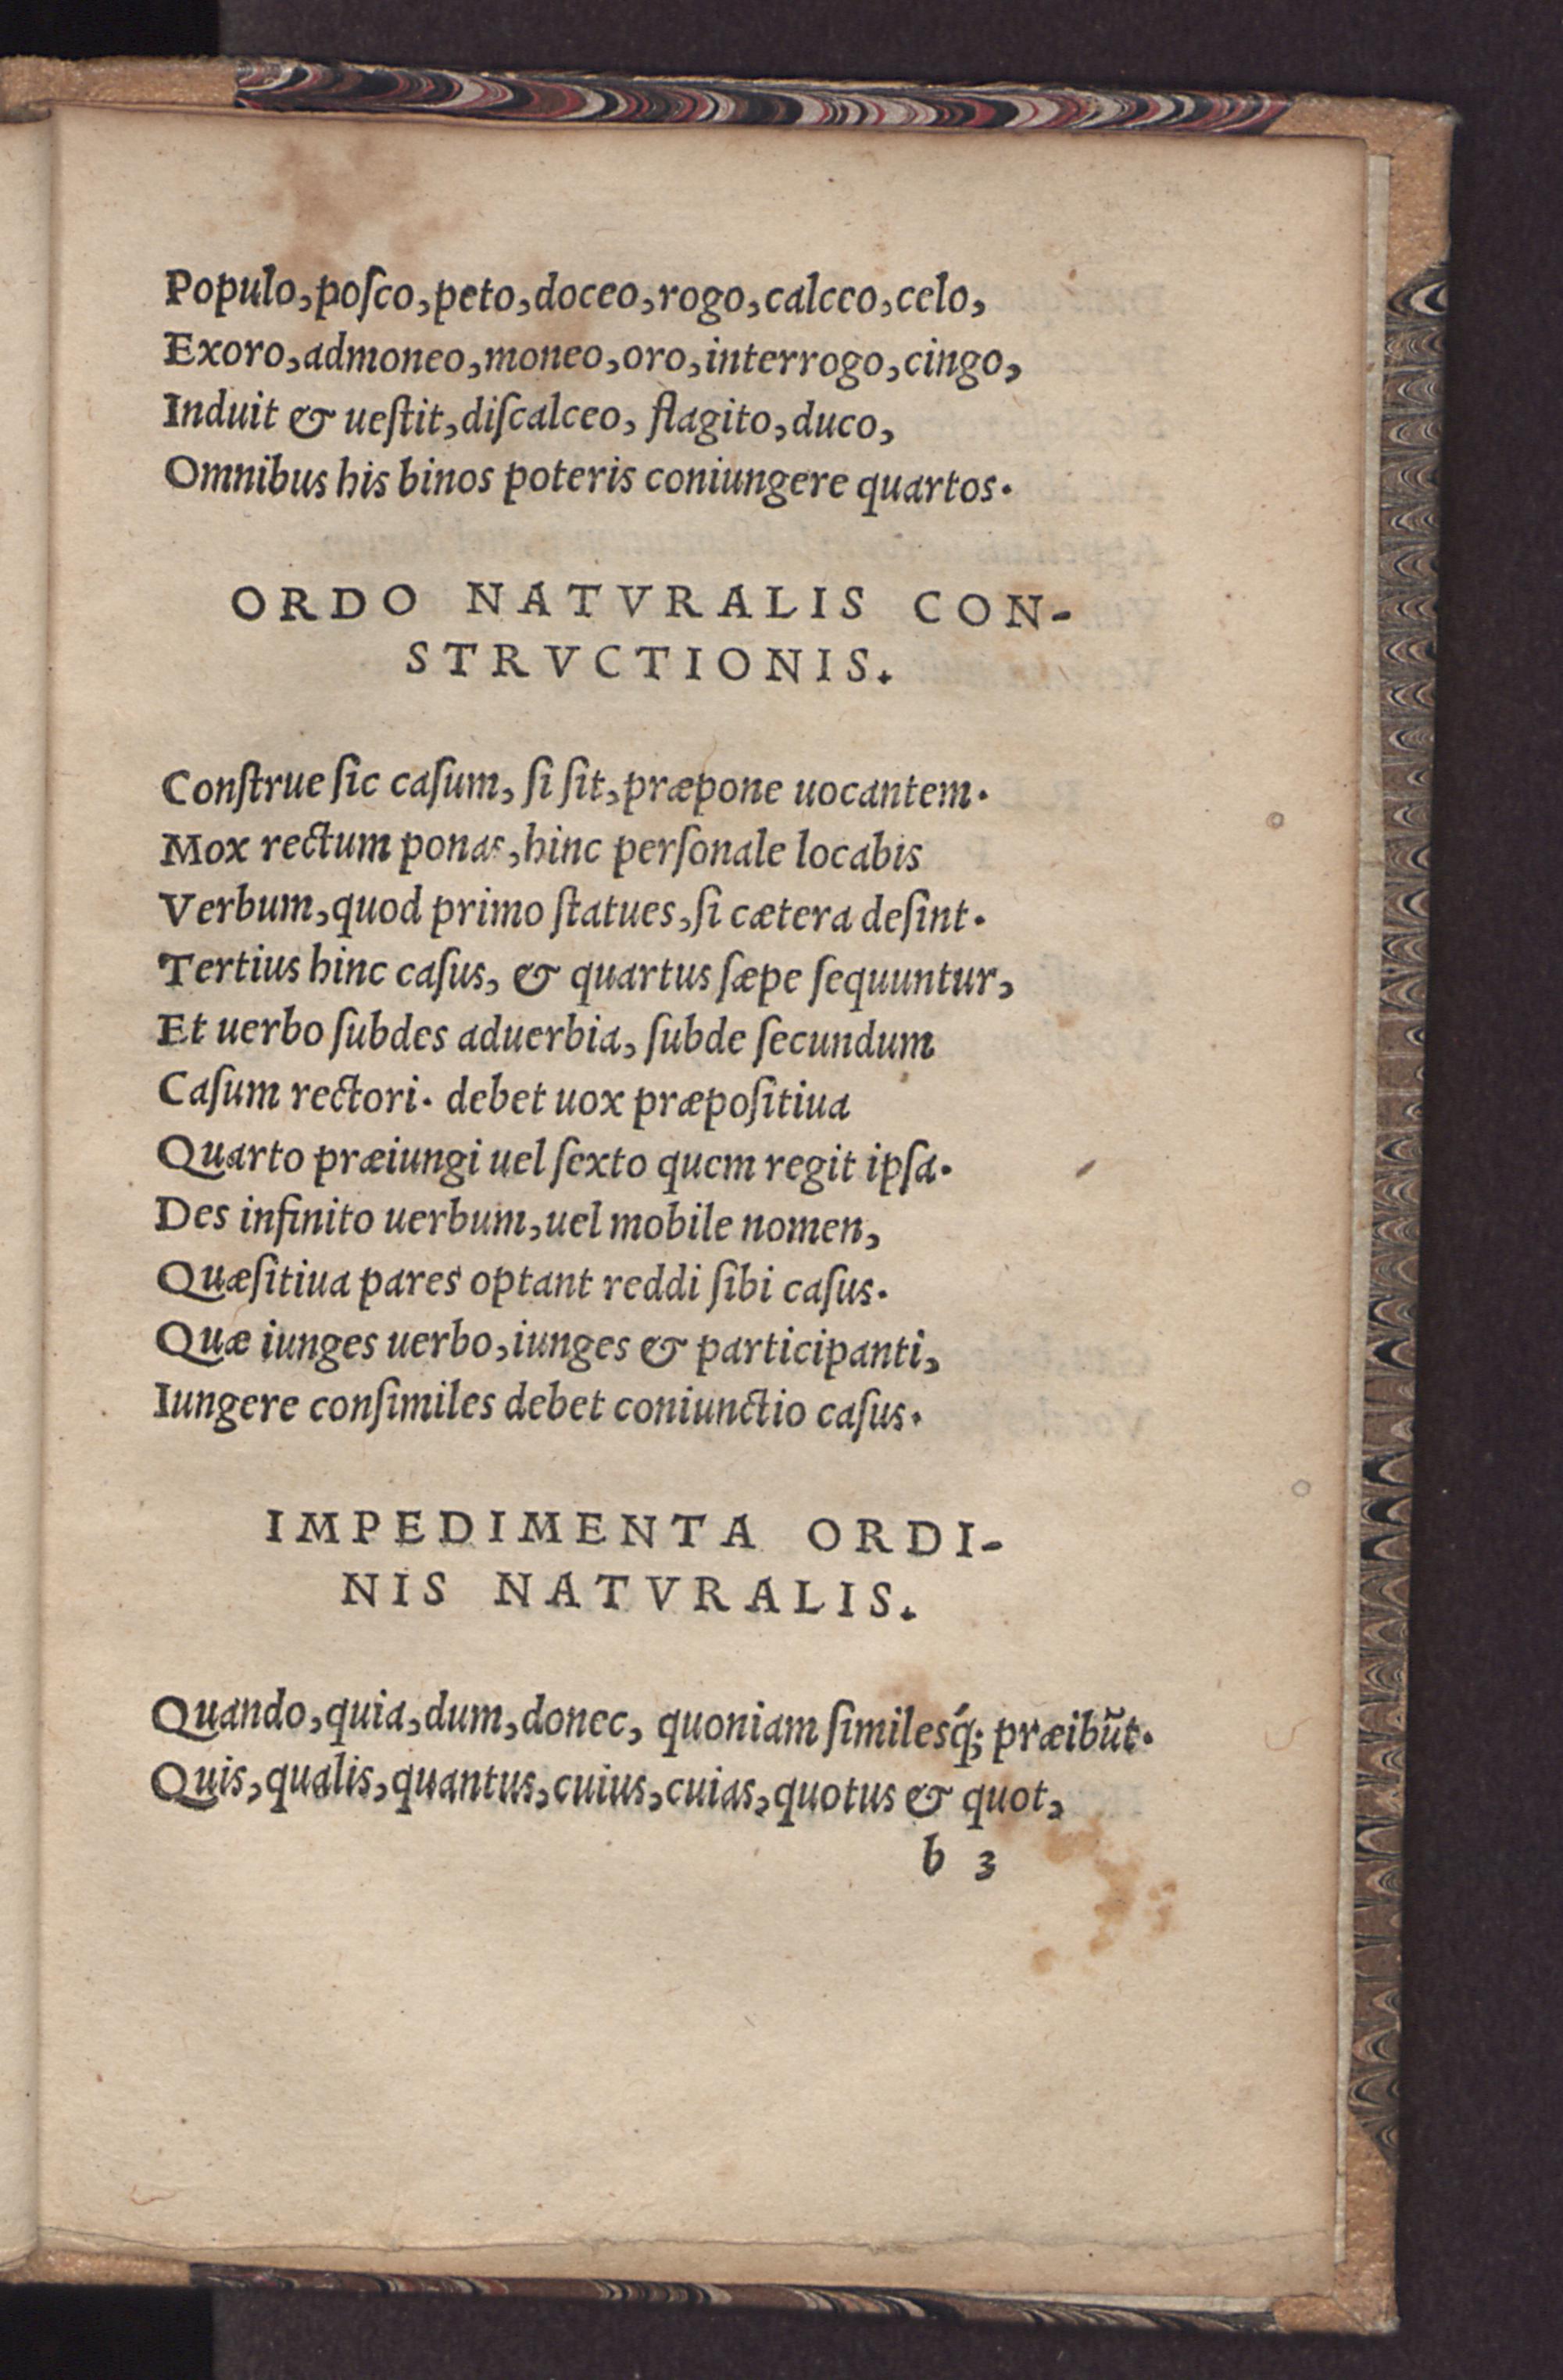 Populo,poſco,peto,doceo,rogo,calceo,celo,
Exoro,admoneo,moneo,oro,interrogo,cingo,
Induit & ueſtit,diſcalceo, flagito,duco,
Omnibus his binos poteris coniungere quartos.
ORDO NATVRALIS CON-
STRVCTIONIS.
Conſtrue ſic caſum, ſi ſit,præpone uocantem.
Mox rectum ponas,hinc perſonale locabis
Verbum,quod primo ſtatues,ſi cætera deſint.
Tertius hinc caſus, & quartus ſæpe ſequuntur,
Et uerbo ſubdes aduerbia, ſubde ſecundum
Caſum rectori. debet uox præpoſitiua
Quarto præiungi uel ſexto quem regit ipſa.
Des infinito uerbum,uel mobile nomen,
Quæſitiua pares optant reddi ſibi caſus.
Quæ iunges uerbo,iunges & participanti,
Iungere conſimiles debet coniunctio caſus.
IMPEDIMENTA ORDI-
NIS NATVRALIS.
Quando,quia,dum,donec, quoniam ſimilesq́; præibũt.
Quis,qualis,quantus,cuius,cuias,quotus & quot,
b 3